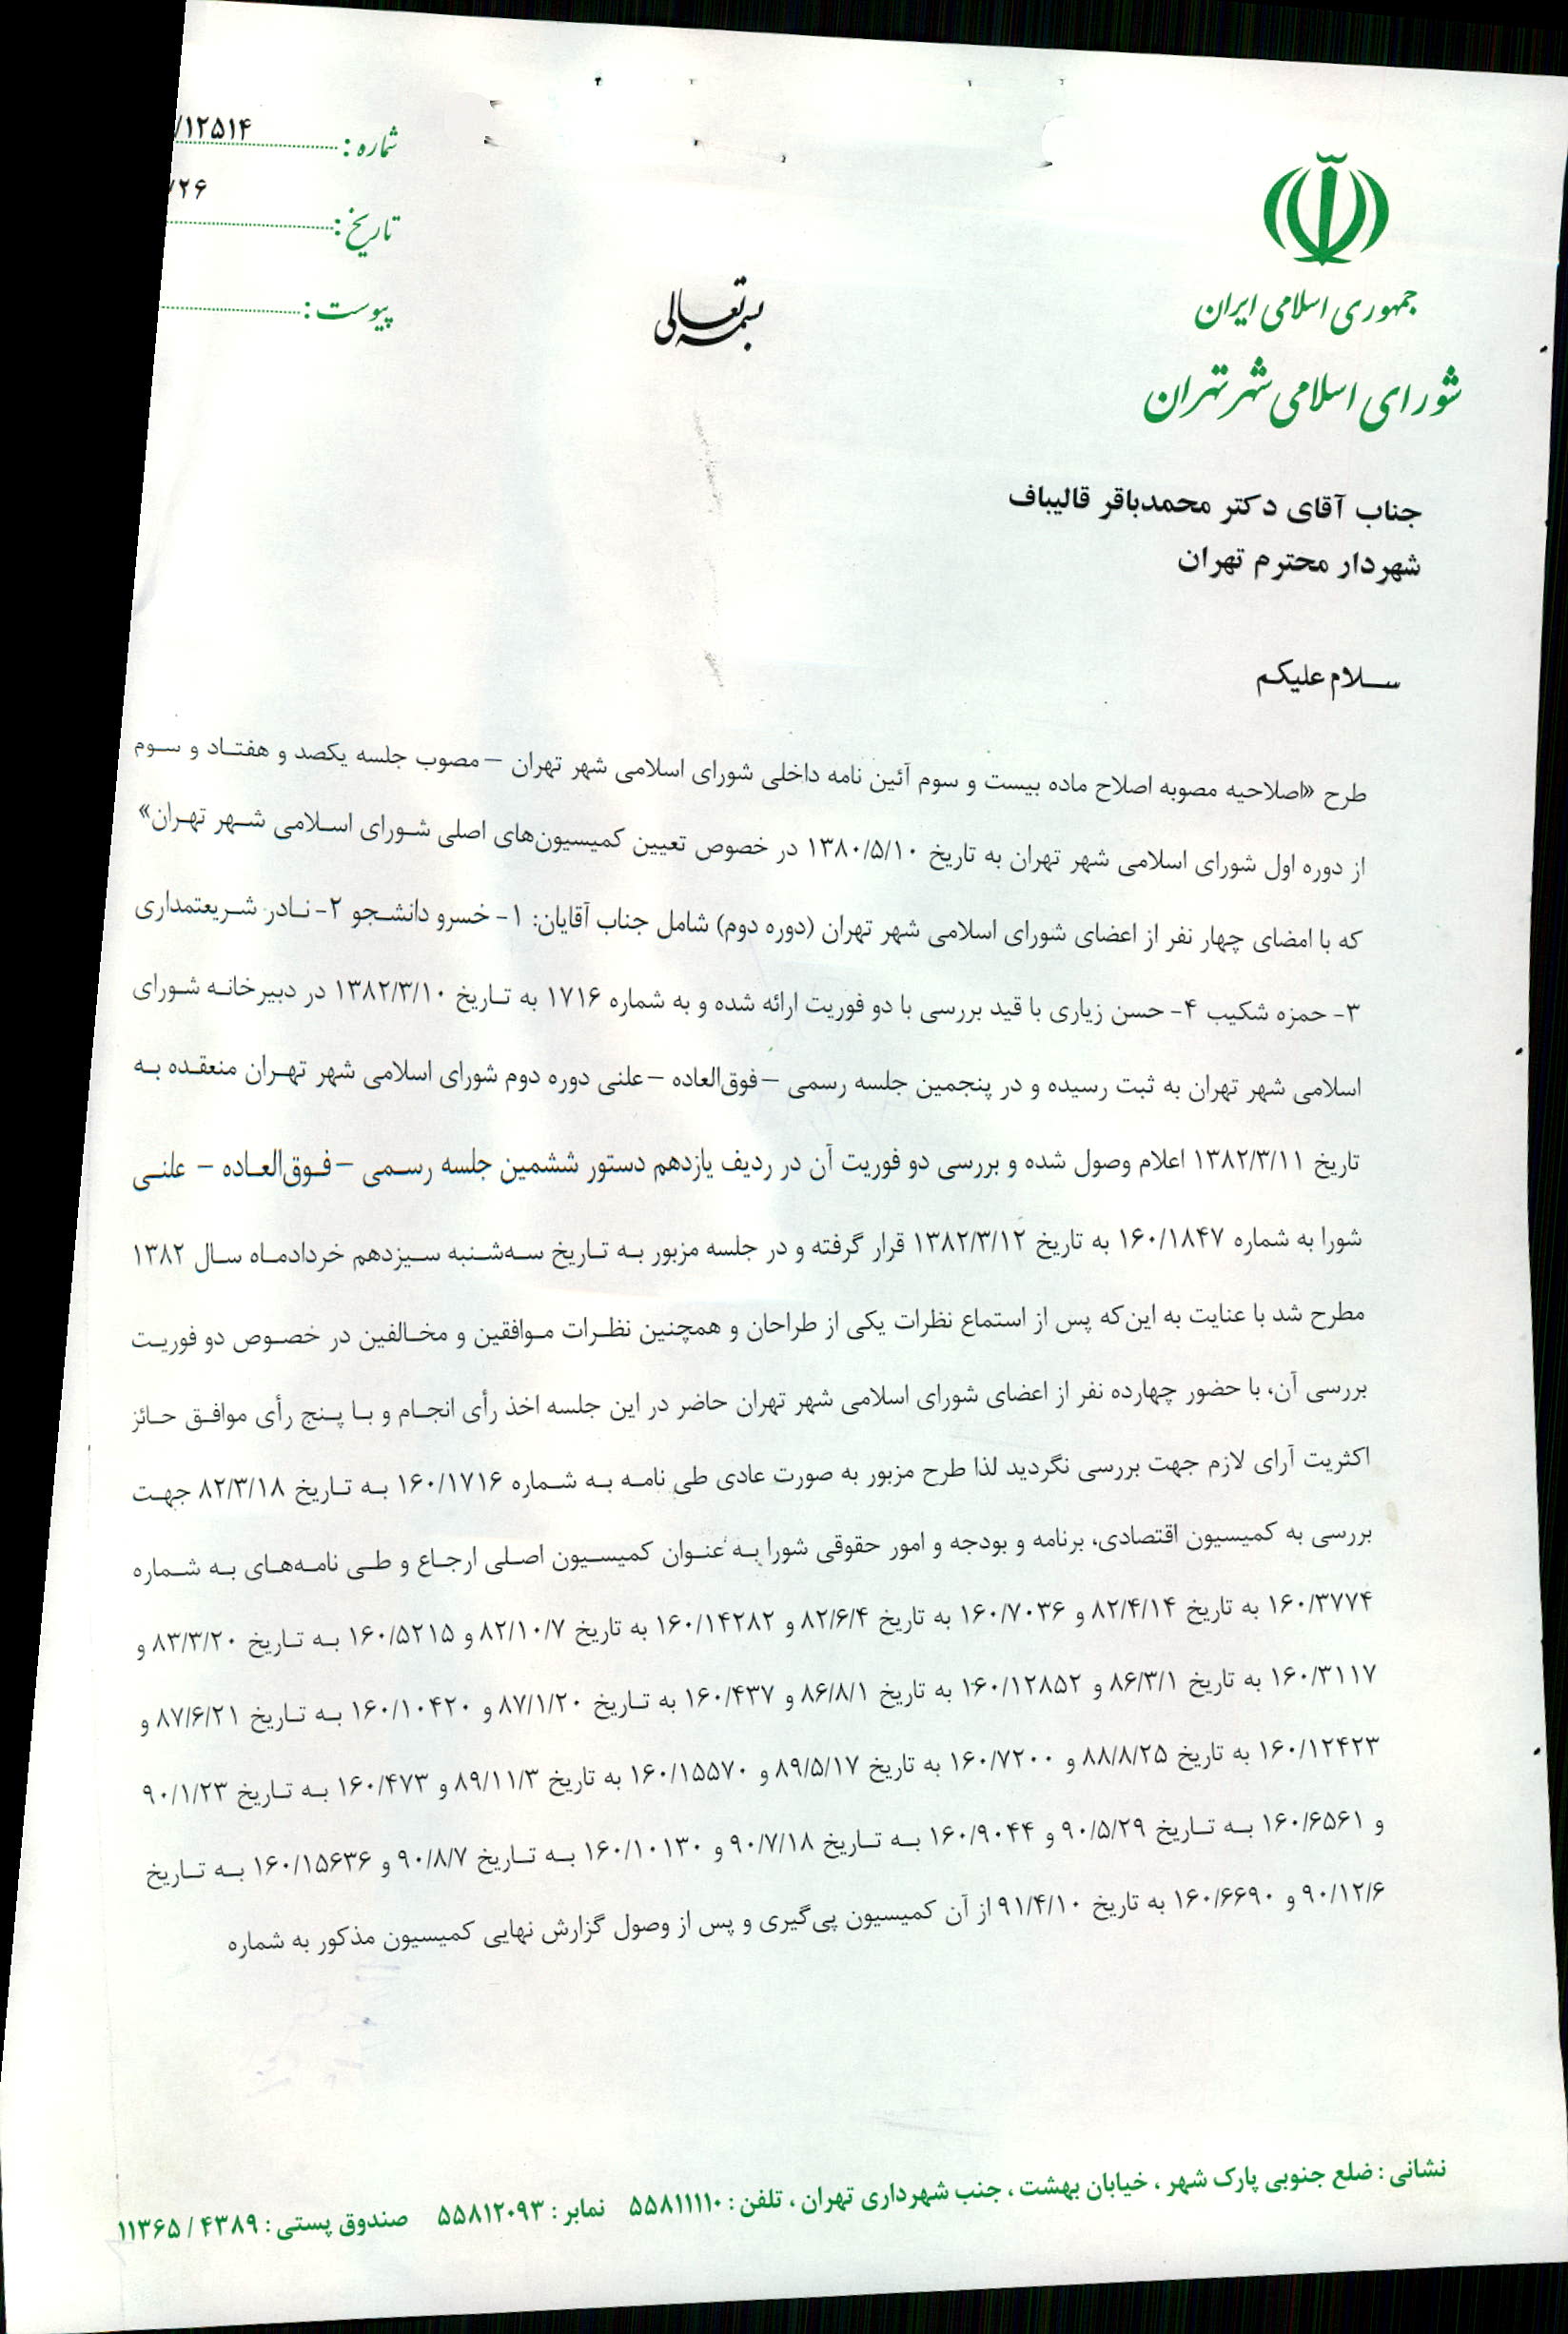 شماره : /۱۲۵۱۴
تاریخ : /۲۶
پیوست :
بسمه تعالی
جمهوری اسلامی ایران
شورای اسلامی شهر تهران
جناب آقای دکتر محمدباقر قالیباف
شهردار محترم تهران
سلام علیکم
طرح «اصلاحیه مصوبه اصلاح ماده بیست و سوم آئین نامه داخلی شورای اسلامی شهر تهران – مصوب جلسه یکصد و هفتاد و سوم
از دوره اول شورای اسلامی شهر تهران به تاریخ ۱۳۸۰/۵/۱۰ در خصوص تعیین کمیسیون‌های اصلی شورای اسلامی شهر تهران»
که با امضای چهار نفر از اعضای شورای اسلامی شهر تهران (دوره دوم) شامل جناب آقایان: ۱- خسرو دانشجو ۲- نادر شریعتمداری
۳- حمزه شکیب ۴- حسن زیاری با قید بررسی با دو فوریت ارائه شده و به شماره ۱۷۱۶ به تاریخ ۱۳۸۲/۳/۱۰ در دبیرخانه شورای
اسلامی شهر تهران به ثبت رسیده و در پنجمین جلسه رسمی – فوق‌العاده – علنی دوره دوم شورای اسلامی شهر تهران منعقده به
تاریخ ۱۳۸۲/۳/۱۱ اعلام وصول شده و بررسی دو فوریت آن در ردیف یازدهم دستور ششمین جلسه رسمی – فوق‌العاده – علنی
شورا به شماره ۱۶۰/۱۸۴۷ به تاریخ ۱۳۸۲/۳/۱۲ قرار گرفته و در جلسه مزبور به تاریخ سه‌شنبه سیزدهم خردادماه سال ۱۳۸۲
مطرح شد با عنایت به این‌که پس از استماع نظرات یکی از طراحان و همچنین نظرات موافقین و مخالفین در خصوص دو فوریت
بررسی آن، با حضور چهارده نفر از اعضای شورای اسلامی شهر تهران حاضر در این جلسه اخذ رأی انجام و با پنج رأی موافق حائز
اکثریت آرای لازم جهت بررسی نگردید لذا طرح مزبور به صورت عادی طی نامه به شماره ۱۶۰/۱۷۱۶ به تاریخ ۸۲/۳/۱۸ جهت
بررسی به کمیسیون اقتصادی، برنامه و بودجه و امور حقوقی شورا به عنوان کمیسیون اصلی ارجاع و طی نامه‌های به شماره
۱۶۰/۳۷۷۴ به تاریخ ۸۲/۴/۱۴ و ۱۶۰/۷۰۳۶ به تاریخ ۸۲/۶/۴ و ۱۶۰/۱۴۲۸۲ به تاریخ ۸۲/۱۰/۷ و ۱۶۰/۵۲۱۵ به تاریخ ۸۳/۳/۲۰ و
۱۶۰/۳۱۱۷ به تاریخ ۸۶/۳/۱ و ۱۶۰/۱۲۸۵۲ به تاریخ ۸۶/۸/۱ و ۱۶۰/۴۳۷ به تاریخ ۸۷/۱/۲۰ و ۱۶۰/۱۰۴۲۰ به تاریخ ۸۷/۶/۲۱ و
۱۶۰/۱۲۴۲۳ به تاریخ ۸۸/۸/۲۵ و ۱۶۰/۷۲۰۰ به تاریخ ۸۹/۵/۱۷ و ۱۶۰/۱۵۵۷۰ به تاریخ ۸۹/۱۱/۳ و ۱۶۰/۴۷۳ به تاریخ ۹۰/۱/۲۳
و ۱۶۰/۶۵۶۱ به تاریخ ۹۰/۵/۲۹ و ۱۶۰/۹۰۴۴ به تاریخ ۹۰/۷/۱۸ و ۱۶۰/۱۰۱۳۰ به تاریخ ۹۰/۸/۷ و ۱۶۰/۱۵۶۳۶ به تاریخ
۹۰/۱۲/۶ و ۱۶۰/۶۶۹۰ به تاریخ ۹۱/۴/۱۰ از آن کمیسیون پی‌گیری و پس از وصول گزارش نهایی کمیسیون مذکور به شماره
نشانی : ضلع جنوبی پارک شهر ، خیابان بهشت ، جنب شهرداری تهران ، تلفن : ۵۵۸۱۱۱۱۰ نمابر : ۵۵۸۱۲۰۹۳ صندوق پستی : ۴۳۸۹ / ۱۱۳۶۵